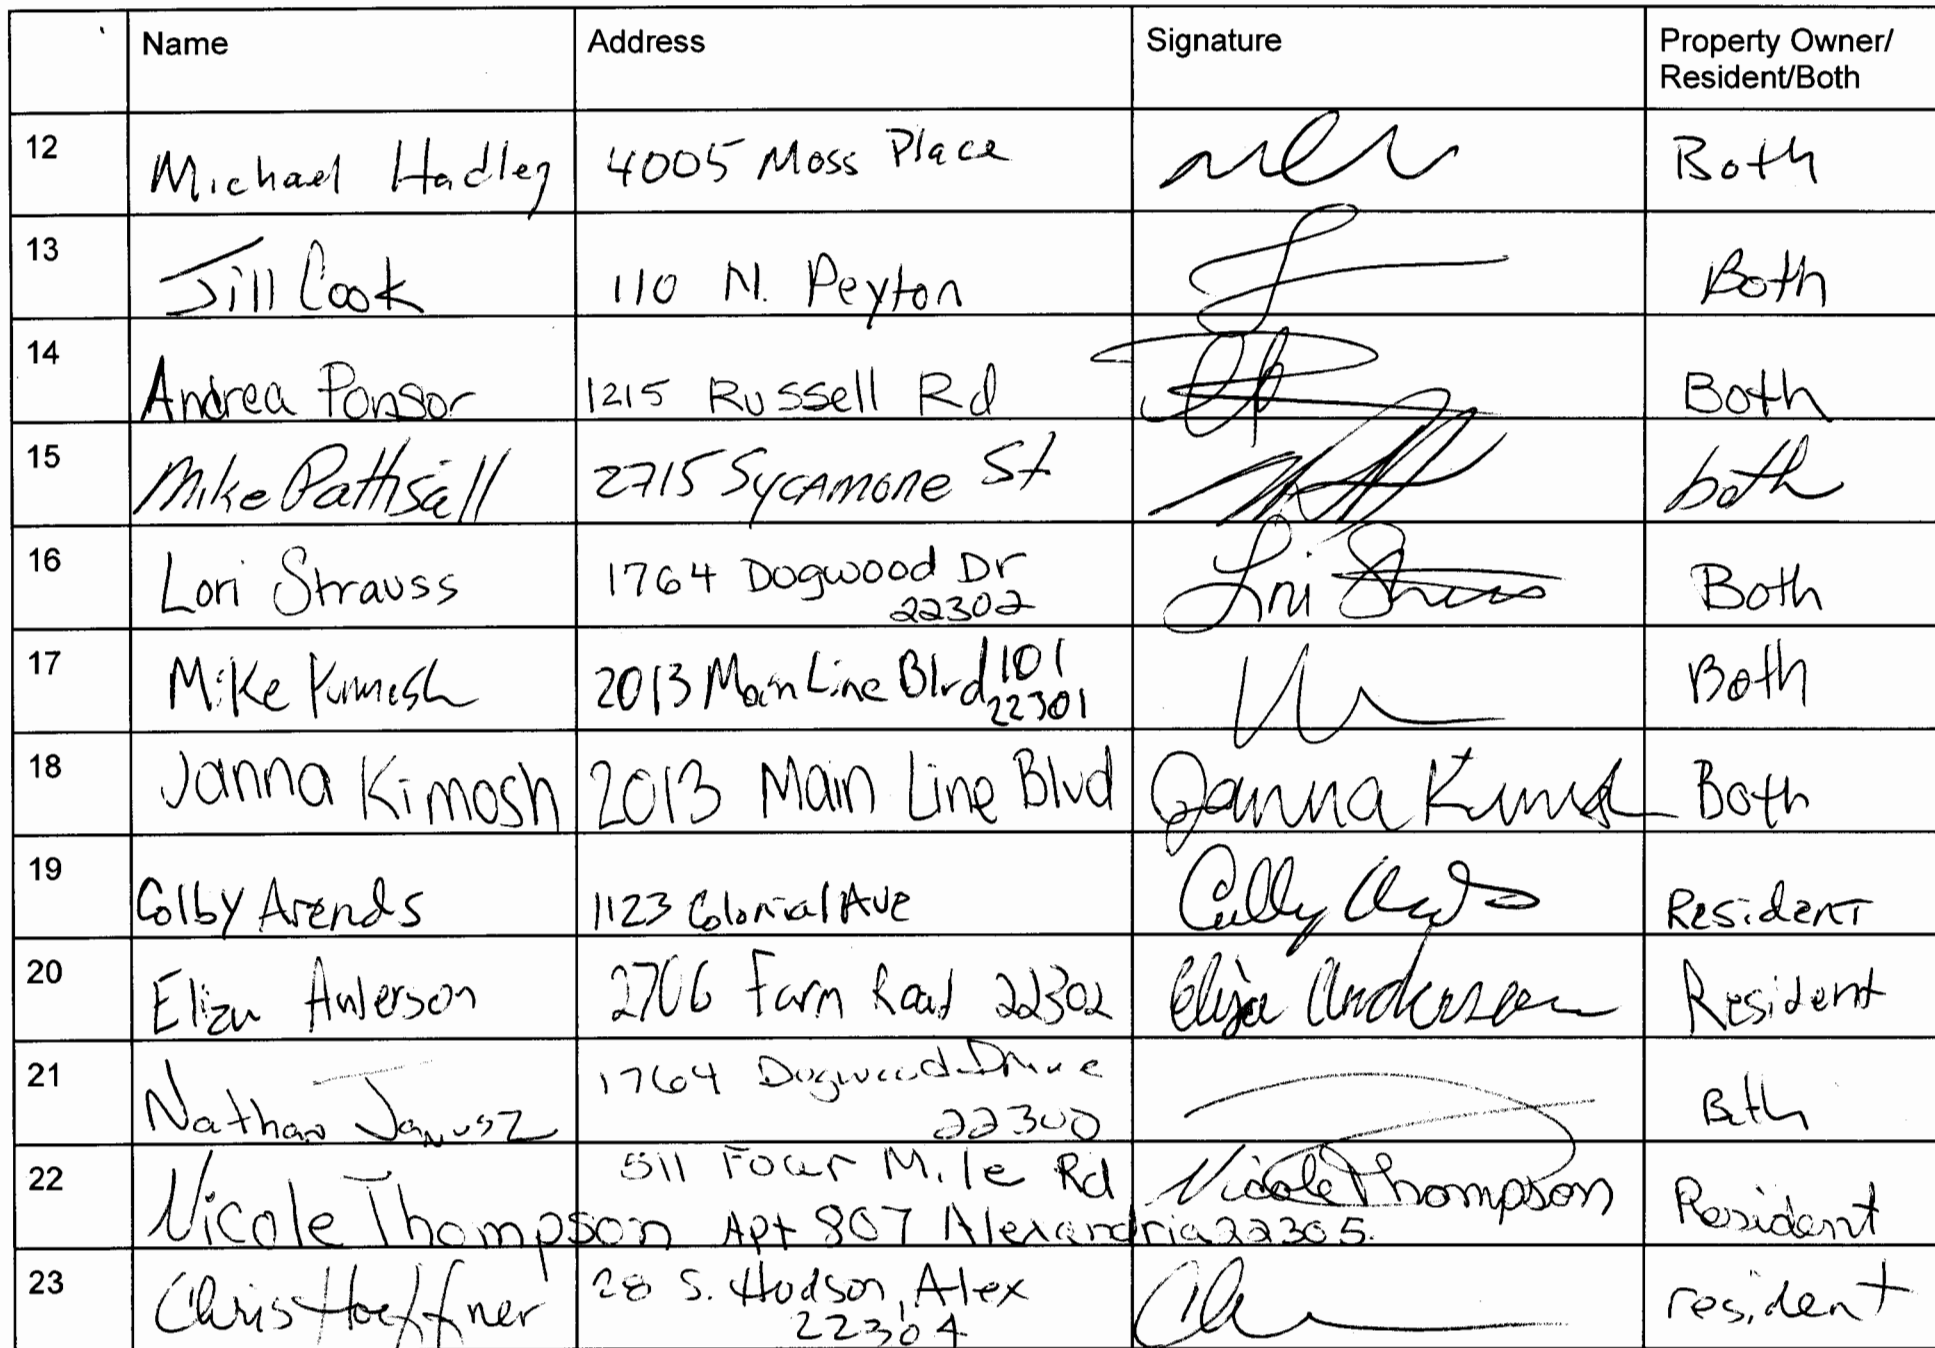 Name Address Signature Property Owner/
Resident/Both
12 Michael Hadley 4005 Moss Place Both
13 Jill Cook 110 N. Peyton Both
14 Andrea Ponsor 1215 Russell Rd Both
15 Mike Pattisall 2715 Sycamore St both
16 Lori Strauss 1764 Dogwood Dr Lori Strauss Both
22302
17 Mike Kimosh 2013 Main Line Blvd 101 Both
22301
18 Janna Kimosh 2013 Main Line Blvd Janna Kimosh Both
19 Colby Arends 1123 Colonial Ave Colby Arends Resident
20 Eliza Anderson 2706 Farm Road 22302 Eliza Anderson Resident
21 Nathan Janusz 1764 Dogwood Drive Both
22302
22 Nicole Thompson 511 Four Mile Rd Nicole Thompson Resident
Apt 807 Alexandria 22305.
23 Chris Hoeffner 28 S. Hudson, Alex resident
22304